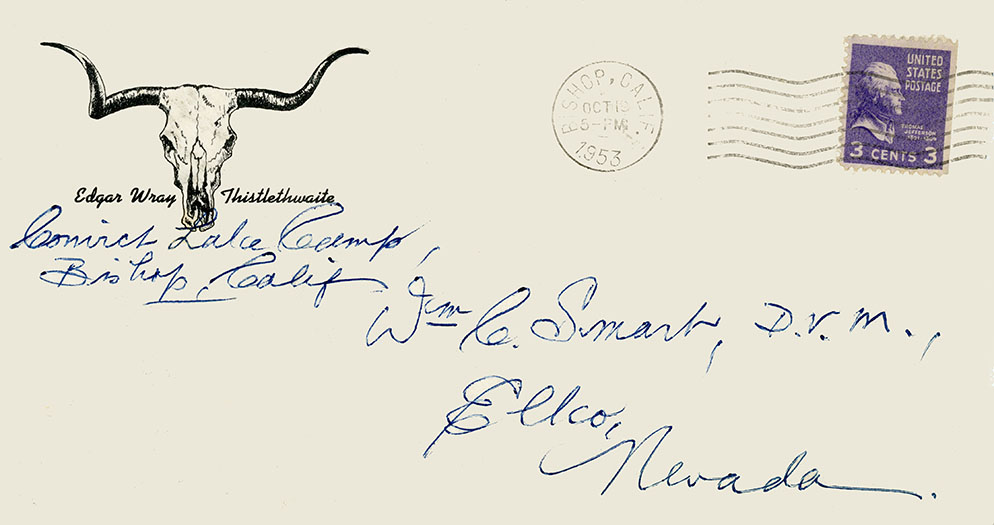 Edgar Wray Thistlethwaite
Convict Lake Camp,
Bishop, Calif
BISHOP, CALIF.
OCT
5-PM
1953
UNITED
STATES
POSTAGE
THOMAS
JEFFERSON
3 CENTS 3
Wm C. Smart, D.V.M.,
Elko,
Nevada.